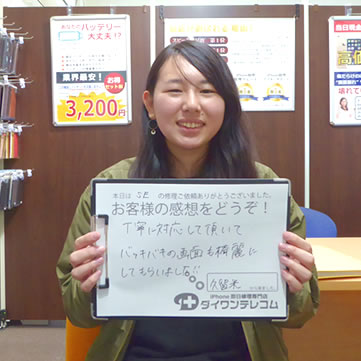 あなたのバッテリー
大丈夫!?
業界最安!
お得
3,200円
本日は SE の修理ご依頼ありがとうございました。
お客様の感想をどうぞ!
丁寧に対応して頂いて
バッキバキの画面も綺麗に
してもらいました!!
久留米 から来ました。
iPhone 即日修理専門店
タイワンテレコム